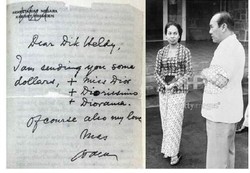 Dear Dik Heldy,
I am sending you some
dollars, + Miss Dior
+ Diorissimo
+ Diorama.
Of course also my love
Mas